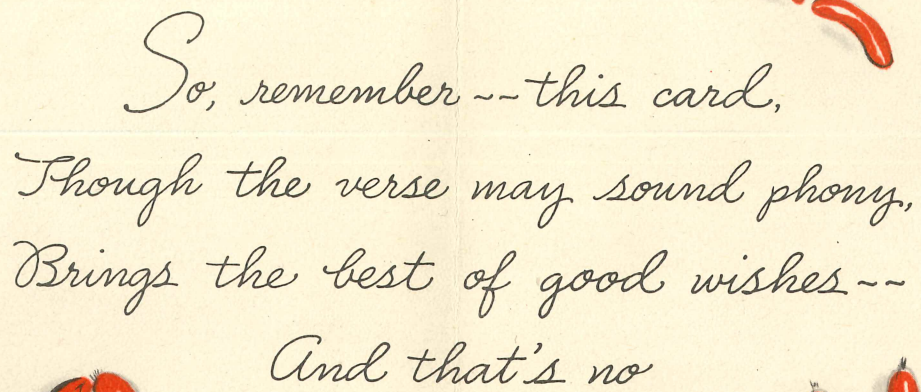 So, remember--this card,
Though the verse may sound phony,
Brings the best of good wishes--
And that's no